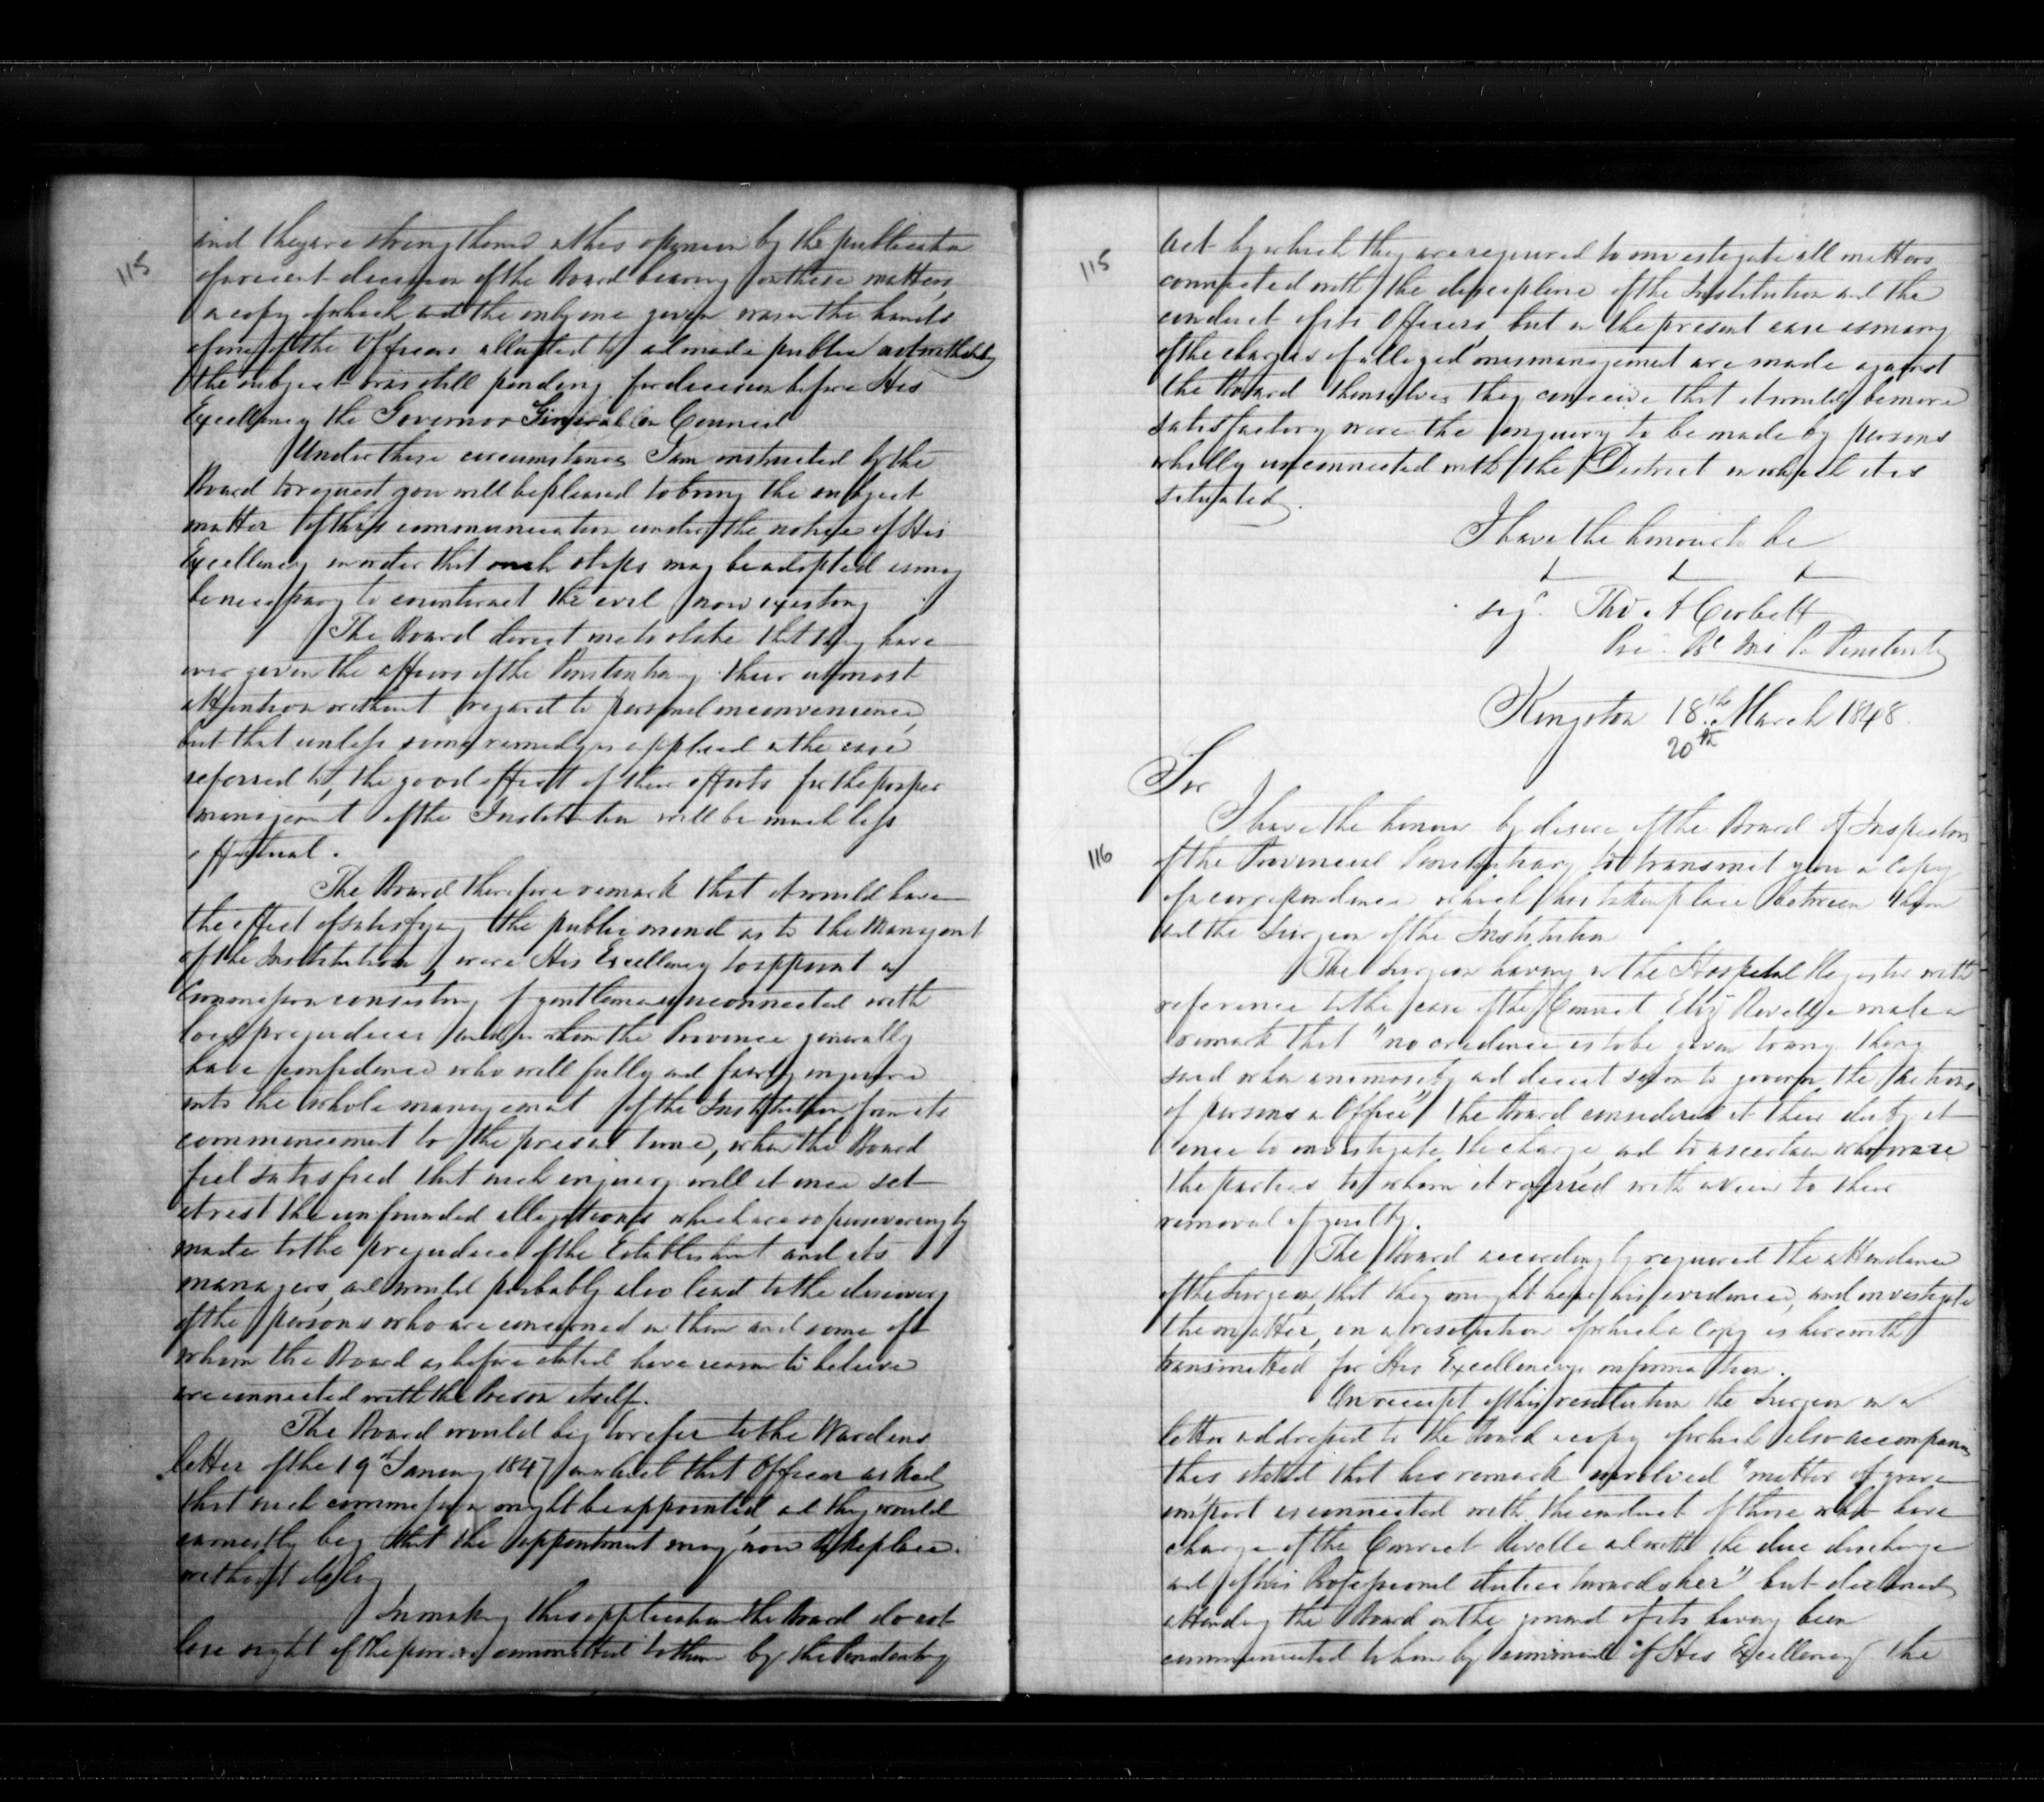 115
and they are strengthened in this opinion by the publication
of a recent decision of the Board bearing on these matters,
a copy of which and the only one given was in the hands
of one of the Officers alluded to and made public notwithstanding
the subject was still pending for decision before His
Excellency the Governor General in Council
Under these circumstances I am instructed by the
Board to request you will be pleased to bring the subject
matter of this communication under the notice of His
Excellency in order that such steps may be adopted as may
be necessary to counteract the evil now existing.
The Board direct me to state that they have
ever given the affairs of the Penitentiary their utmost
attention without regard to personal inconvenience,
but that unless some remedy is applied in the case
referred to, the good effect of their efforts for the proper
management of the Institution will be much less
effectual.
The Board therefore remark that it would have
the effect of satisfying the public mind as to the Management
of the Institution, were His Excellency to appoint a
Commission consisting of gentlemen unconnected with
local prejudices and in whom the Province generally
have confidence who will fully and fairly inquire
into the whole management of the Institution from its
commencement to the present time, when the Board
feel satisfied that such inquiry will at once set
at rest the unfounded allegations which are so perseveringly
made to the prejudice of the Establishment and its
managers, and would probably also lead to the discovery
of the persons who are concerned in them and some of
whom the Board as before stated have reason to believe
are connected with the Prison itself.
The Board would beg to refer to the Wardens
letter of the 19th January 1847 in which that Officer asked
that such commission might be appointed, and they would
earnestly beg that the appointment may now take place
without delay
In making this application the Board do not
lose sight of the powers committed to them by the Penitentiary
115
Act by which they are required to investigate all matters
connected with the discipline of the Institution and the
conduct of its Officers, but in the present case as many
of the charges of alleged mismanagement are made against
the Board themselves they conceive that it would be more
satisfactory were the inquiry to be made by persons
wholly unconnected with the District in which it is
situated.
I have the honour to be
sigd. Thos A Corbett
Pre. Bd Ins P. Penitentiary
Kingston 18th March 1848.
20th
Sir
116
I have the honour by desire of the Board of Inspectors
of the Provincial Penitentiary to transmit you a Copy
of a correspondence which has taken place between them
and the Surgeon of the Institution
The Surgeon having in the Hospital Register with
reference to the case of the Convict Eliz Revelle made a
remark that "no credence is to be given to any thing
said when animosity and deceit seem to govern the actions
of persons in Office" the Board considered it their duty at
once to investigate the charge, and to ascertain who were
the parties to whom it referred with a view to their
removal if guilty.
The Board accordingly required the attendance
of the Surgeon, that they might hear his evidence, and investigate
the matter, in a resolution of which a Copy is herewith
transmitted for His Excellencys information.
On receipt of this resolution the Surgeon in a
letter addressed to the Board a copy of which also accompanies
this stated that his remark involved "matter of grave
import as connected with the conduct of those who have
charge of the Convict Revelle and with the due discharge
and of his Professional duties towards her" but declined
attending the Board on the ground of its having been
communicated to him by command of His Excellency the